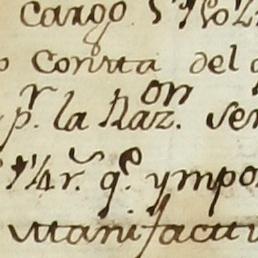 cargo
Consta del
pr. la Razon. se
1/4 r. qe. ympo
manifactu